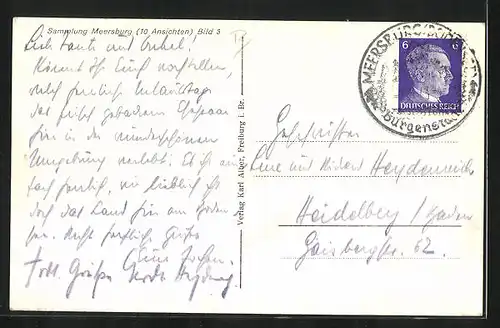 Sammlung Meersburg (10 Ansichten) Bild 5
Liebe Tante und Onkel!
Könnt Ihr Euch vorstellen,
herrliche Urlaubstage
das frisch gebackene Ehepaar
hier in der wunderschönen
Umgebung verlebt. Es ist ein-
fach herrlich, wie lieblich ist
doch das Land hier am Boden-
see. Recht herzliche Grüße
Eure
Verlag Karl Alber, Freiburg i. Br.
MEERSBURG (BODENSEE)
Burgenstadt
6 6
DEUTSCHES REICH
Geschwister
und
Heidelberg / Baden
Gaisbergstr. 62.